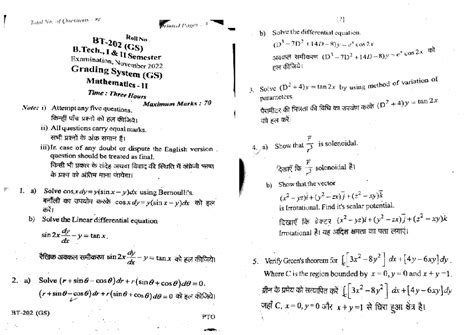 Total No. of Questions :
Printed Pages :
Roll No
BT-202 (GS)
B.Tech., I & II Semester
Examination, November 2022
Grading System (GS)
Mathematics - II
Time : Three Hours
Maximum Marks : 70
Note: i) Attempt any five questions.
किन्हीं पाँच प्रश्नों को हल कीजिये।
ii) All questions carry equal marks.
सभी प्रश्नों के अंक समान हैं।
iii) In case of any doubt or dispute the English version
question should be treated as final.
किसी भी प्रकार के संदेह अथवा विवाद की स्थिति में अंग्रेजी भाषा
के प्रश्न को अंतिम माना जायेगा।
1. a) Solve cos x dy = y(sin x − y)dx using Bernoulli's.
बर्नोली का उपयोग करके cos x dy = y(sin x − y)dx को हल
करें।
b) Solve the Linear differential equation
sin 2x dy/dx − y = tan x.
रैखिक अवकल समीकरण sin 2x dy/dx − y = tan x को हल कीजिये।
2. a) Solve (r + sin θ − cos θ)dr + r(sin θ + cos θ)dθ = 0.
(r + sin θ − cos θ)dr + r(sin θ + cos θ)dθ = 0 को हल कीजिये।
BT-202 (GS)
PTO
[2]
b) Solve the differential equation.
(D³ − 7D² + 14D − 8)y = eˣ cos 2x
अवकल समीकरण (D³ − 7D² + 14D − 8)y = eˣ cos 2x को
हल कीजिये।
3. Solve (D² + 4)y = tan 2x by using method of variation of
parameters
पैरामीटर की भिन्नता की विधि का उपयोग करके (D² + 4)y = tan 2x
को हल करें।
4. a) Show that is solenoidal.
दिखाएँ कि solenoidal है।
b) Show that the vector
(x² − yz)i + (y² − zx)j + (z² − xy)k
is Irrotational. Find it's scalar potential.
दिखाएँ कि वेक्टर (x² − yz)i + (y² − zx)j + (z² − xy)k
Irrotational है। यह अदिश क्षमता का पता लगाएं।
5. Verify Green's theorem for ∫[3x² − 8y²] dx + [4y − 6xy]dy.
Where C is the region bounded by x = 0, y = 0 and x + y = 1.
ग्रीन के प्रमेय को सत्यापित करें ∫[3x² − 8y²] dx + [4y − 6xy]dy
जहाँ C, x = 0, y = 0 और x + y = 1 से घिरा हुआ क्षेत्र है।